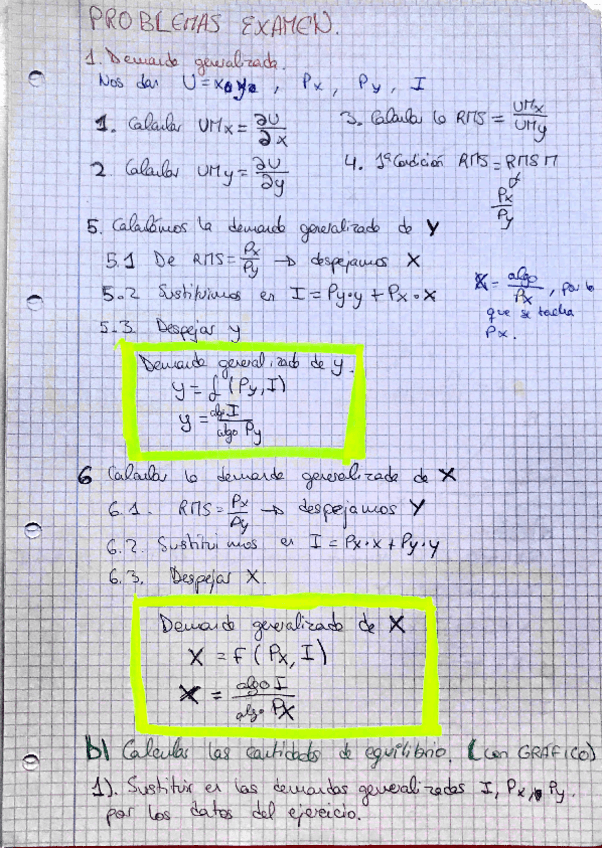 PROBLEMAS EXAMEN.
1. Demanda generalizada.
Nos dan U = x y , Px , Py , I
1. Calcular UMx = ∂U/∂x
2. Calcular UMy = ∂U/∂y
3. Calcular la RMS = UMx/UMy
4. 1ª Condición RMS = RMSM
Px/Py
5. Calculamos la demanda generalizada de Y
5.1 De RMS = Px/Py → despejamos X
5.2 Sustituimos en I = Py·y + Px·x
X = algo/Px, por lo
que se tacha
Px.
5.3. Despejar y
Demanda generalizada de y.
y = f (Py, I)
y = algo I/algo Py
6 Calcular la demanda generalizada de X
6.1. RMS = Px/Py → despejamos Y
6.2. Sustituimos en I = Px·x + Py·y
6.3. Despejar X.
Demanda generalizada de X
X = f (Px, I)
X = algo I/algo Px
b) Calcular las cantidades de equilibrio. (con GRAFICO)
1). Sustituir en las demandas generalizadas I, Px, Py.
por los datos del ejercicio.